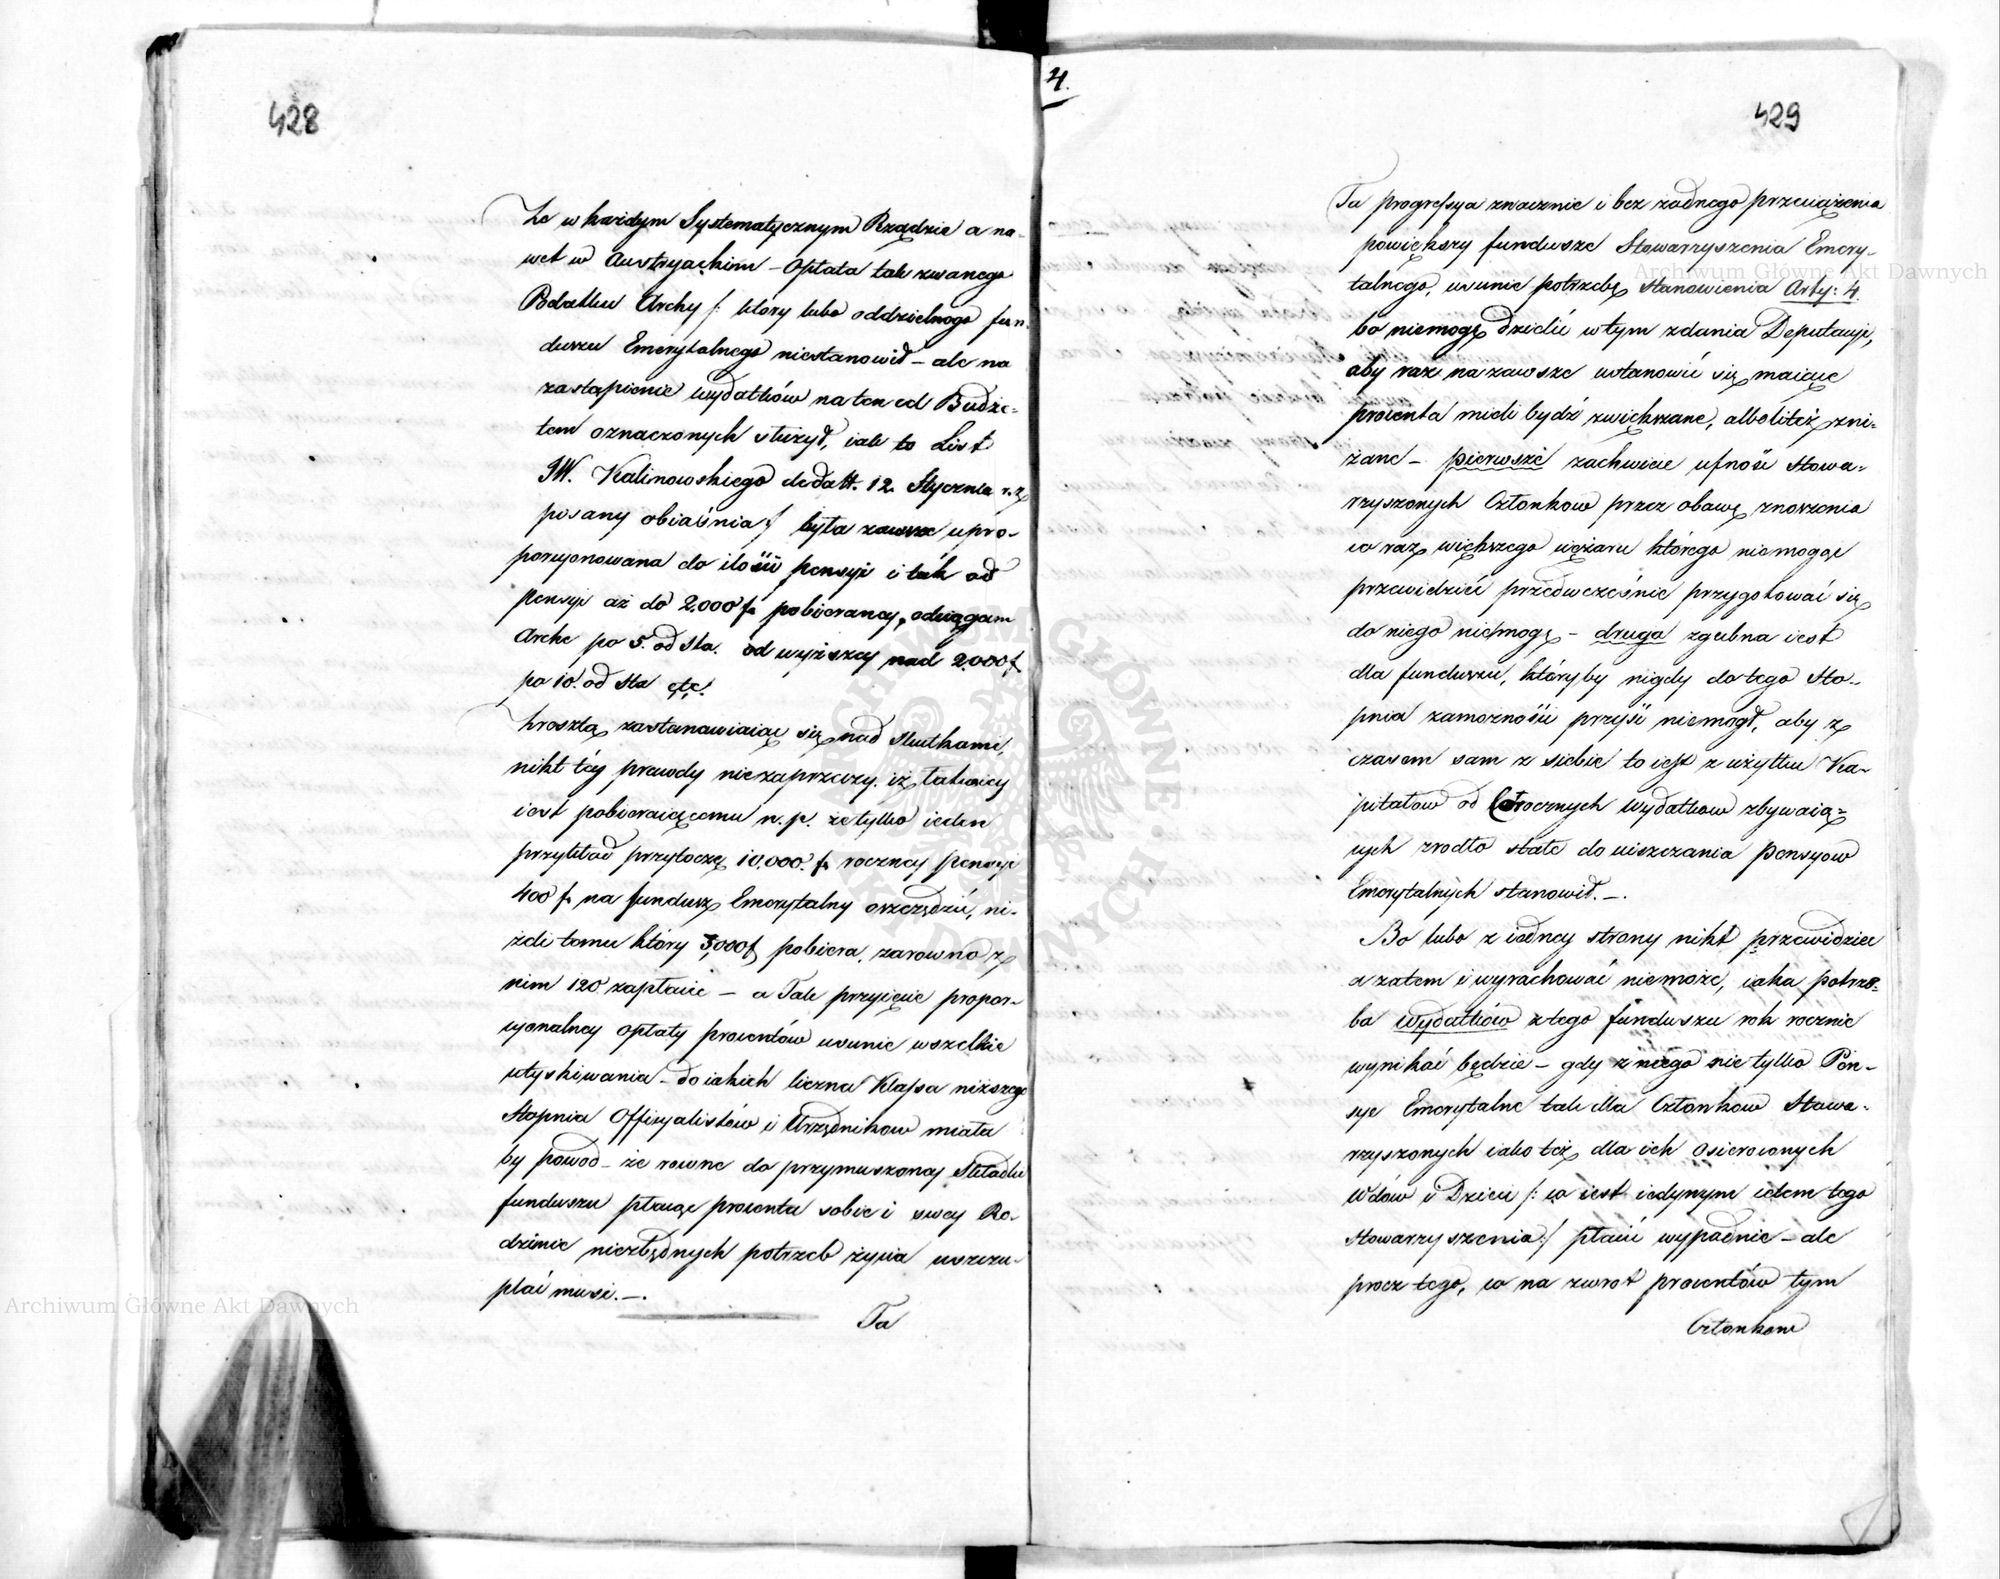 428
Że w każdym Systematycznym Rządzie a na-
wet w Austryackim – Opłata tak zwanego
Podatku Archy /: który lubo oddzielnego fun-
duszu Emerytalnego niestanowił – ale na
zastąpienie wydatków na ten cel Budże-
tem oznaczonych służył, iak to List
JW. Kalinowskiego de datt. 12 Stycznia r. z
pisany obiaśnia :/ była zawsze upro-
porcyonowana do ilości pensyi i tak od
pensyi aż do 2000 f. pobieraney, odciągam
Arche po 5. od sta. od wyższey nad 2000 f.
po 10. od sta etc.
Zresztą zastanawiaiąc się nad skutkami,
nikt téy prawdy niezaprzeczy. iż łatwiey
iest pobieraiącemu n. p. że tylko ieden
przykład przytoczę 10,000. f. roczney pensyi
400 f. na fundusz Emerytalny oszczędzić, ni-
żeli temu który 3,000 f. pobiera, zarowno z
nim 120 zapłacić – a Tak przyięcie propor-
cyonalney opłaty procentów usunie wszelkie
utyskiwania – do iakich liczna Klassa niższego
Stopnia Officyalistów i Urzędnikow miała
by powod – że rowne do przymuszoney Składki
funduszu płacąc procenta sobie i swey Ro-
dzinie niezbędnych potrzeb życia uszczu-
plać musi. –.
Ta
4.
429
Ta progressya znacznie i bez żadnego przeciążenia
powiększy fundusze Stowarzyszenia Emery-
talnego, usunie potrzebę stanowienia Arty: 4.
bo niemogę dzielić w tym zdania Deputacyi,
aby raz na zawsze ustanowić się maiące
procenta mieli bydź zwiększane, albolitéż zni-
żane – pierwsze zachwieie ufność Stowa-
rzyszonych Członkow przez obawę znoszenia
co raz większego ciężaru którego niemogąc
przewidzieć przedwcześnie przygotować się
do niego niemogę – druga zgubna iest
dla funduszu, któryby nigdy do tego Sto-
pnia zamożności przyść niemogł, aby z
czasem sam z siebie to iest z użytku Ka-
pitałow od rocznych wydatkow zbywaią-
cych zrodło stałe do uiszczania Pensyow
Emerytalnych stanowił. –.
Bo lubo z iedney strony nikt przewidziec
a zatem i wyrachować niemoże, iaka potrze-
ba wydatków z tego funduszu rok rocznie
wynikać będzie – gdy z niego nie tylko Pen-
sye Emerytalne tak dla Członkow Stowa-
rzyszonych iako też dla ich osieroconych
Wdów i Dzieci /: co iest iedynym celem tego
Stowarzyszenia :/ płacić wypadnie – ale
procz tego, co na zwrot procentów tym
Członkom
Archiwum Główne Akt Dawnych
Archiwum Główne Akt Dawnych
ARCHIWUM GŁÓWNE AKT DAWNYCH